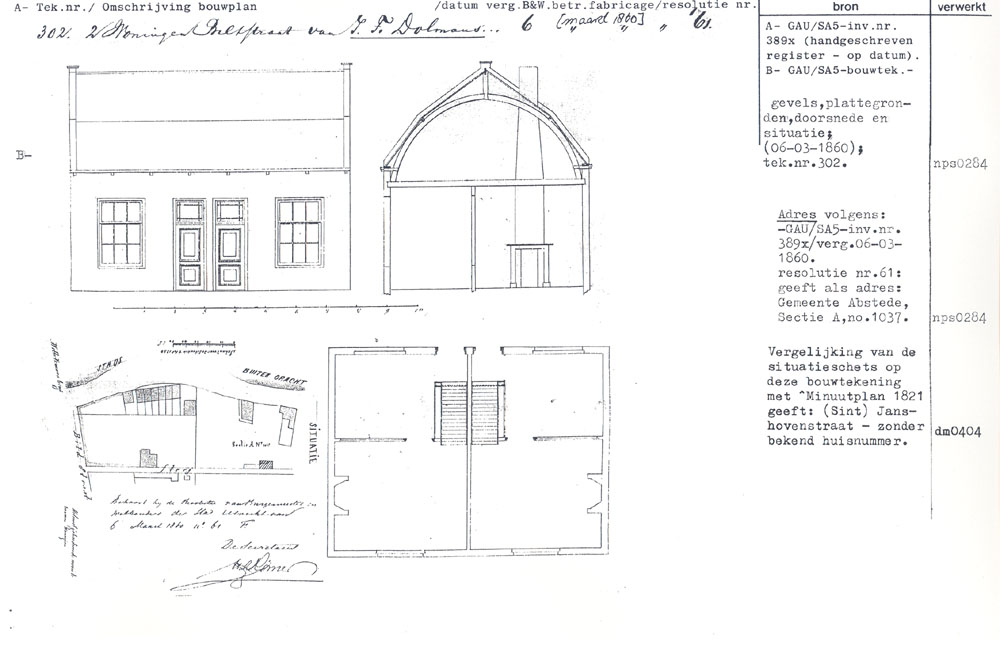 A- Tek.nr./ Omschrijving bouwplan /datum verg.B&W.betr.fabricage/resolutie nr.
302. 2 Woningen Biltstraat van J. F. Dolmans... 6 [maart 1860] " 61.
bron
verwerkt
A- GAU/SA5-inv.nr.
389x (handgeschreven
register - op datum).
B- GAU/SA5-bouwtek.-
gevels,plattegron-
den,doorsnede en
situatie;
(06-03-1860);
tek.nr.302.
nps0284
B-
Adres volgens:
-GAU/SA5-inv.nr.
389x/verg.06-03-
1860.
resolutie nr.61:
geeft als adres:
Gemeente Abstede,
Sectie A,no.1037.
nps0284
Vergelijking van de
situatieschets op
deze bouwtekening
met ^Minuutplan 1821
geeft: (Sint) Jans-
hovenstraat - zonder
bekend huisnummer.
dm0404
STADS
BUITEN GRACHT
SITUATIE
Steeg
Behoort bij de Resolutie van Burgemeester en
Wethouders der Stad Utrecht van
6 Maart 1860 no 61 F.
De Secretaris